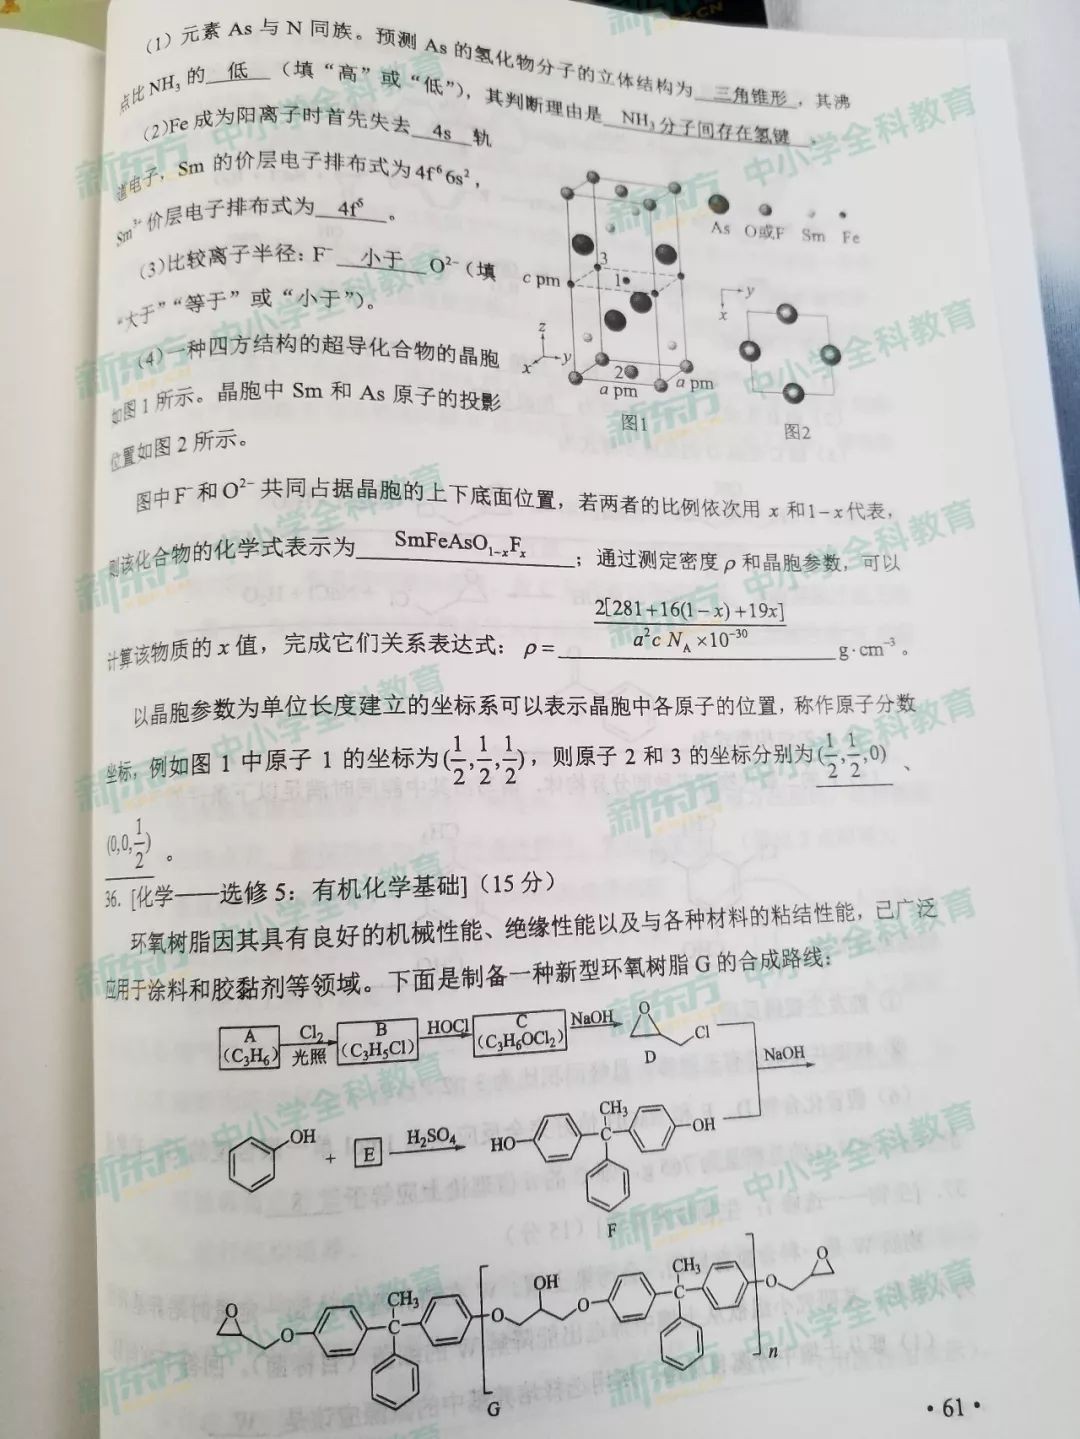 (1) 元素 As 与 N 同族。预测 As 的氢化物分子的立体结构为 三角锥形 ，其沸
点比 NH₃ 的 低 （填“高”或“低”），其判断理由是 NH₃分子间存在氢键 。
(2)Fe 成为阳离子时首先失去 4s 轨
道电子，Sm 的价层电子排布式为 4f⁶6s²，
Sm³⁺价层电子排布式为 4f⁵ 。
(3)比较离子半径：F⁻ 小于 O²⁻（填
“大于”“等于”或“小于”）。
(4)一种四方结构的超导化合物的晶胞
如图1所示。晶胞中 Sm 和 As 原子的投影
位置如图2所示。
As O或F Sm Fe
c pm
3
1
2
z
y
x
a pm
a pm
图1
y
x
图2
图中 F⁻和 O²⁻ 共同占据晶胞的上下底面位置，若两者的比例依次用 x 和1−x代表，
则该化合物的化学式表示为 SmFeAsO₁₋ₓFₓ ；通过测定密度 ρ 和晶胞参数，可以
计算该物质的 x 值，完成它们关系表达式：ρ= 2[281+16(1−x)+19x] / a²c N_A ×10⁻³⁰ g·cm⁻³。
以晶胞参数为单位长度建立的坐标系可以表示晶胞中各原子的位置，称作原子分数
坐标，例如图 1 中原子 1 的坐标为(1/2,1/2,1/2)，则原子 2 和 3 的坐标分别为(1/2,1/2,0)、
(0,0,1/2) 。
36. [化学——选修5：有机化学基础]（15 分）
环氧树脂因其具有良好的机械性能、绝缘性能以及与各种材料的粘结性能，已广泛
应用于涂料和胶黏剂等领域。下面是制备一种新型环氧树脂 G 的合成路线：
A (C₃H₆) Cl₂ 光照 B (C₃H₅Cl) HOCl C (C₃H₆OCl₂) NaOH O Cl D NaOH
OH + E H₂SO₄ HO CH₃ C OH
F
O O CH₃ C O OH O CH₃ C O O n
G
·61·
新东方 中小学全科教育